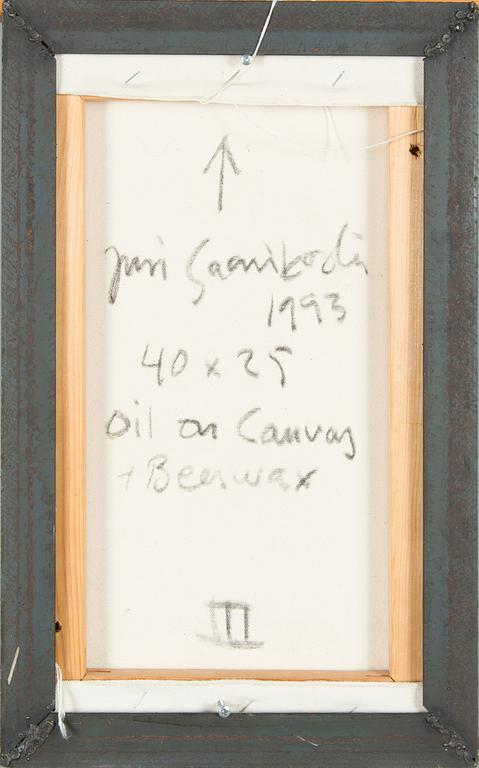 1993
40 x 25
Oil on Canvas
+ Beeswax
III